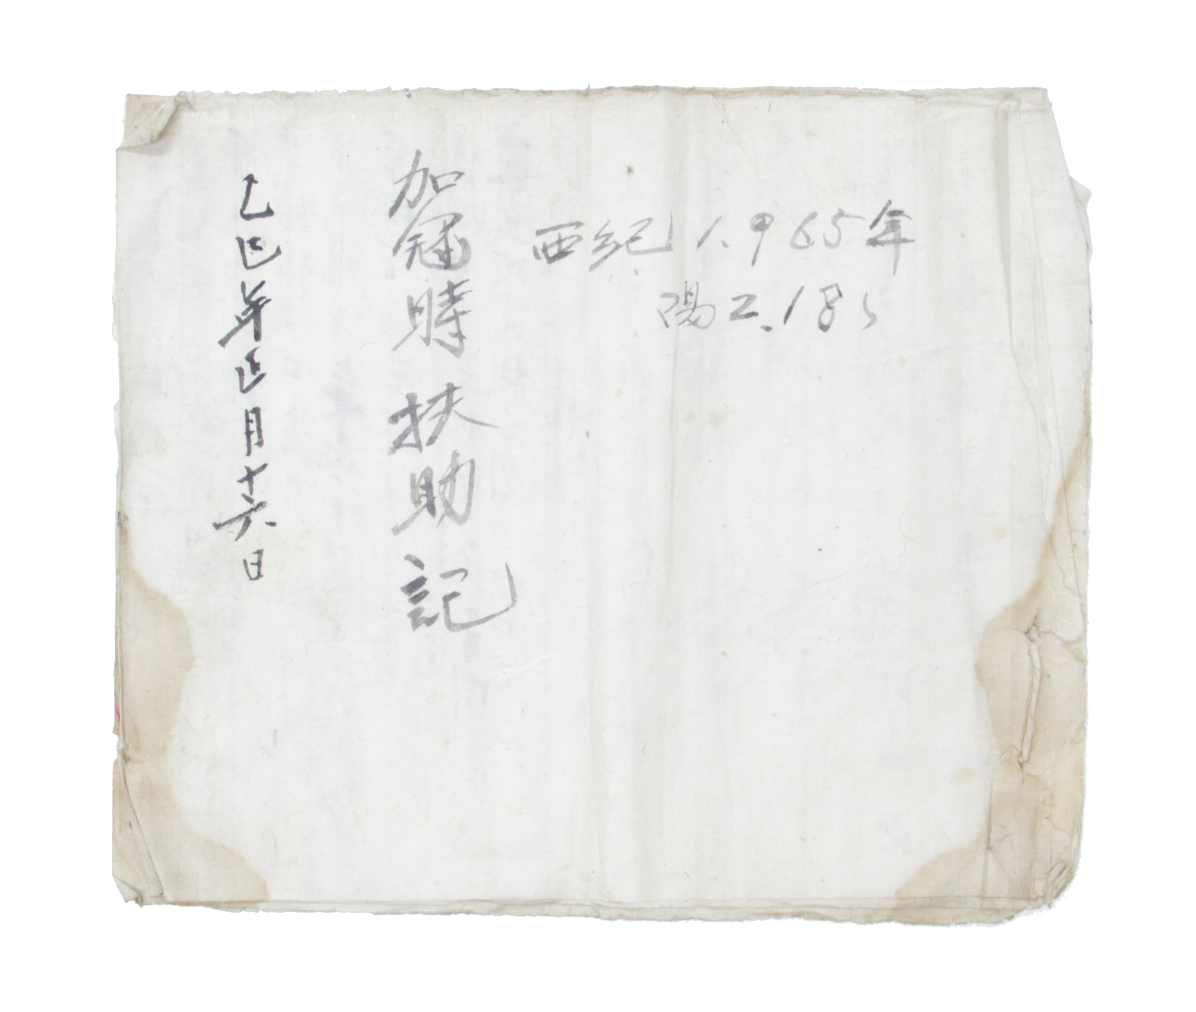 西紀 1.965年
陽 2.18
加冠時扶助記
乙巳年正月十六日